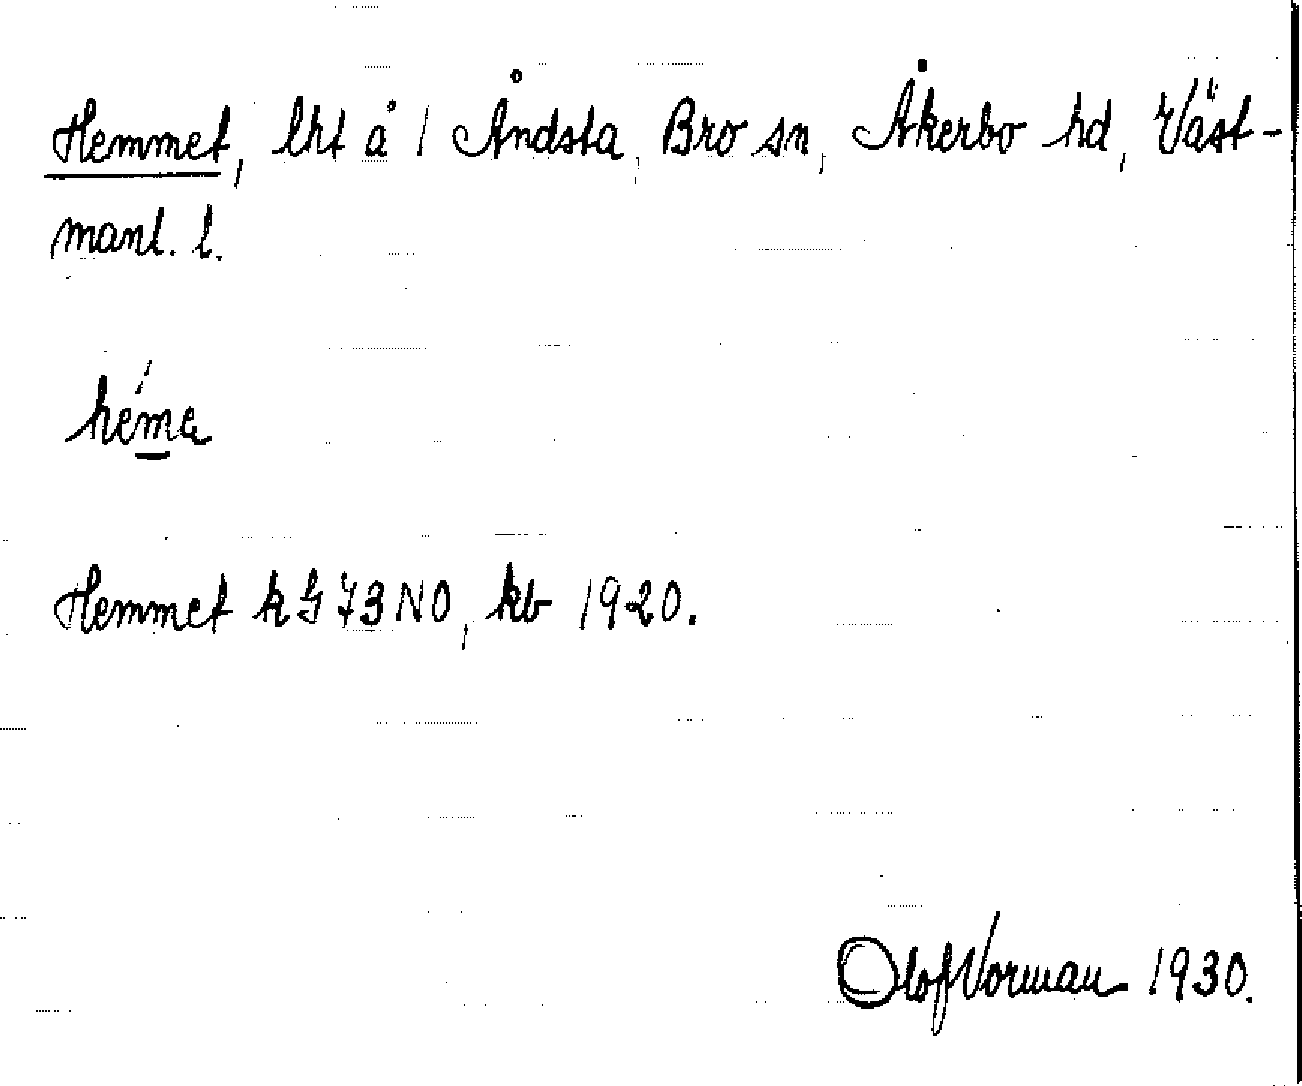 Hemmet, lht å 1 Åndsta, Bro sn, Åkerbo hd, Väst-
manl. l.
héma
Hemmet k G 73 NO, kb 1920.
Olof Vorman 1930.